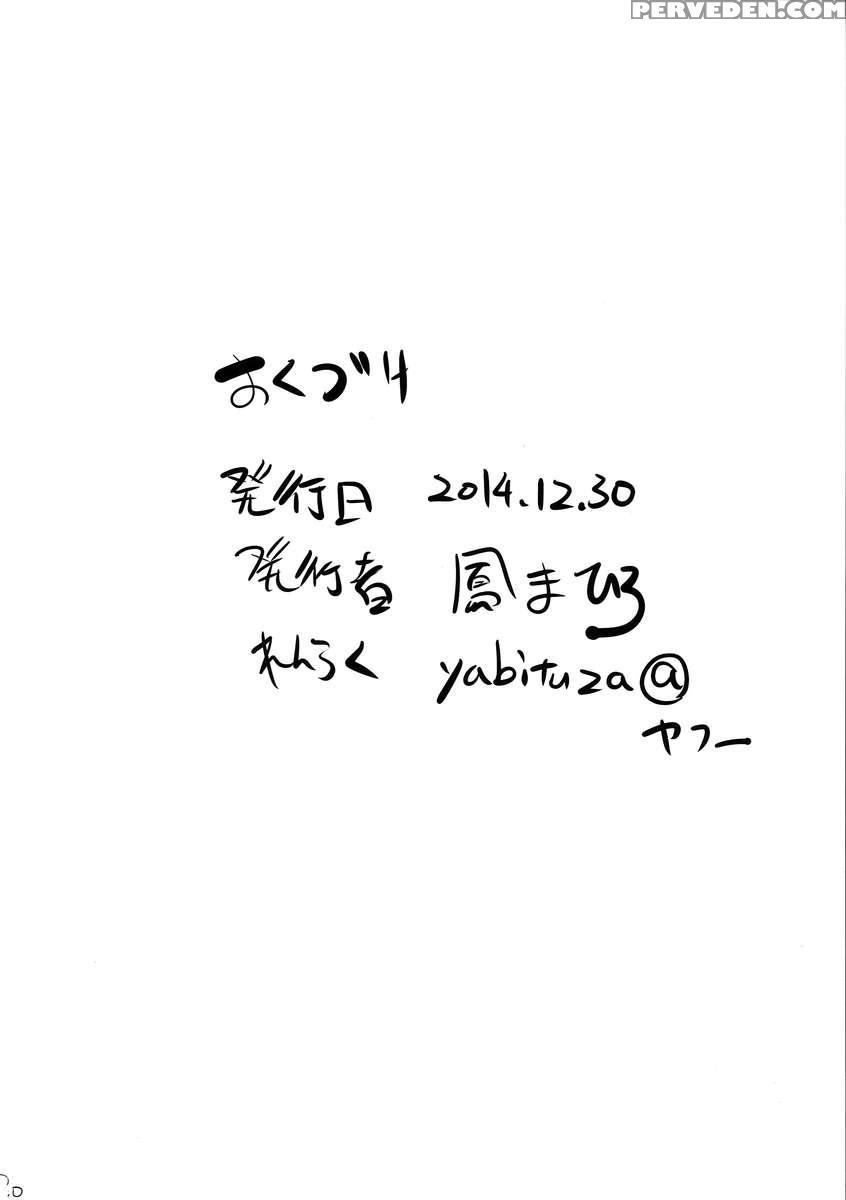 PERVEDEN.COM
おくづけ
発行日 2014.12.30
発行者 鳳まひろ
れんらく yabituza@
ヤフー